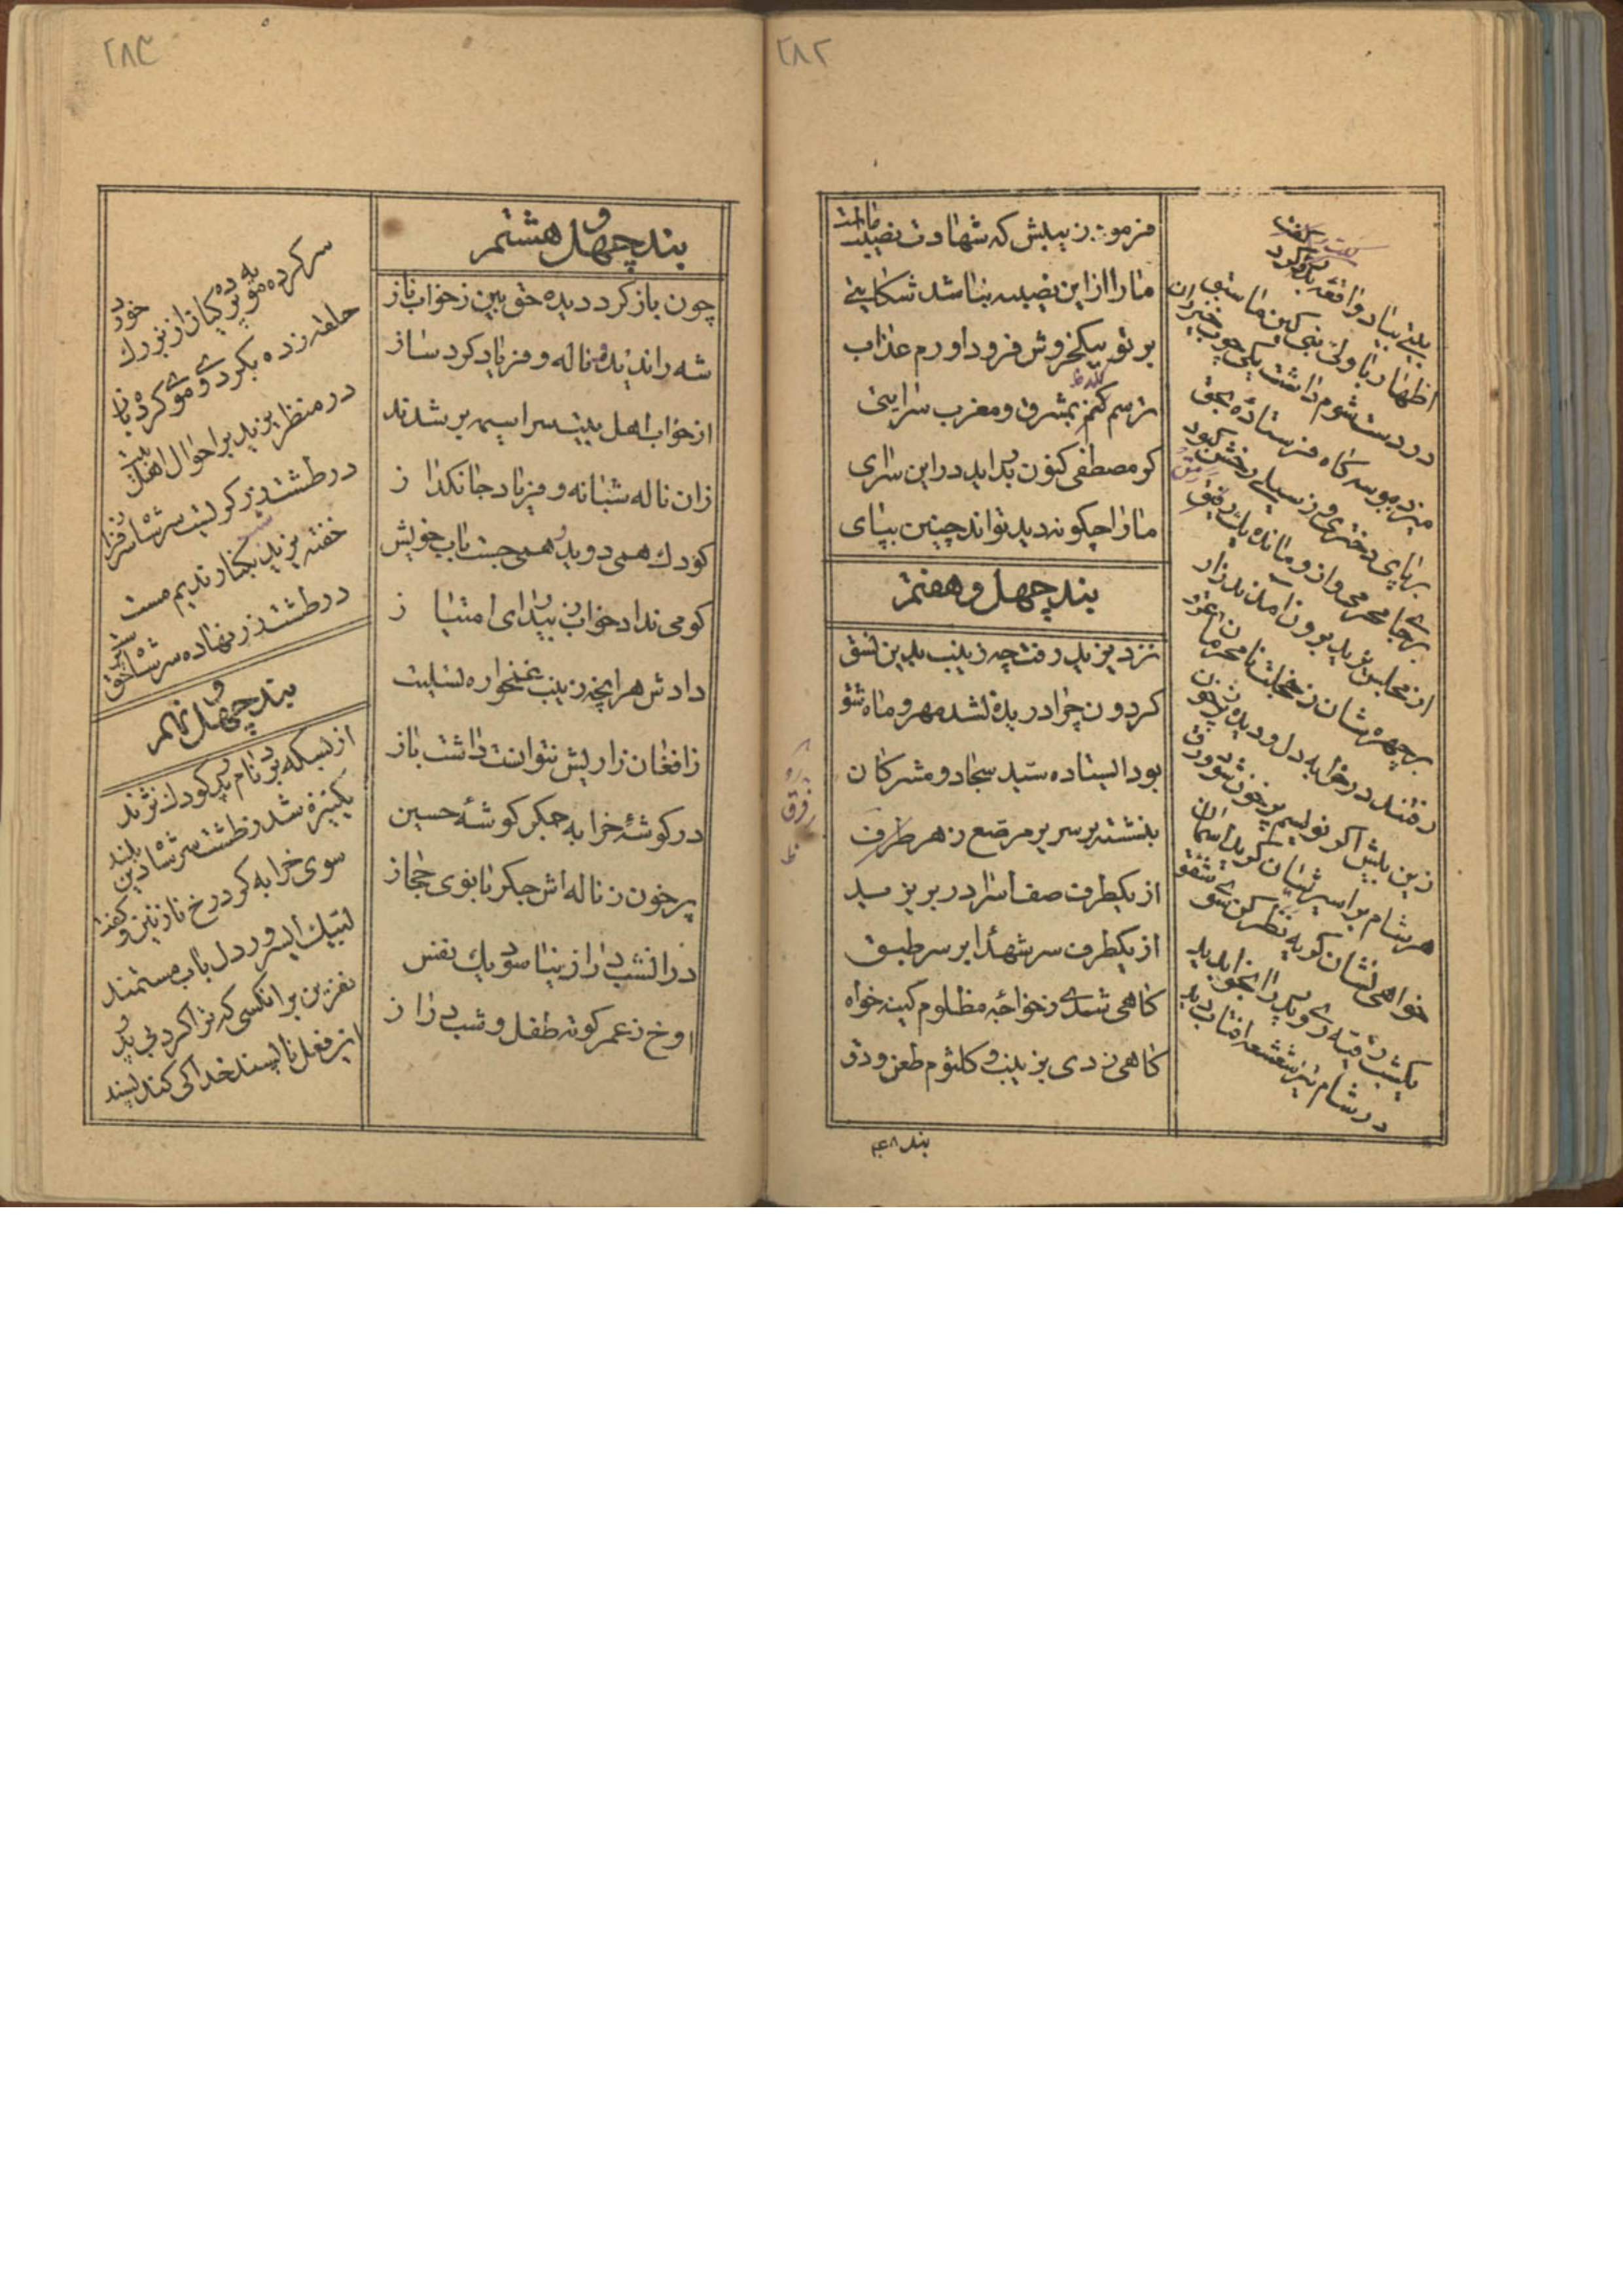 ۲۸۲
فرمود زینبش که شهادت نصیب ماست
ما را از این نصیبه نباشد شکایتی
بر تو بیکخروش فرود اورم عذاب
ترسم کنم بمشرق و مغرب سرایتی
کو مصطفی کنون بدراید در این سرای
ما را چگونه دید تواند چنین بپای
بند چهل و هفتم
نزد یزید رفت چه زینب بدین نسق
کردون چرا دریده نشد مهر و ماه شق
بود ایستاده سید سجاد و مشرکان
بنشسته بر سریر مرصع ز هر طرف
از یکطرف صف اسرا در بر یزید
از یکطرف سر شهدا بر سر طبق
کاهی شدی ز خواجه مظلوم کینه خواه
کاهی زدی بزینب و کلثوم طعن و دق
بیتی بیاد واقعه بدر کرد
اظهار با ولی نبی کین ما سبق
در دست شوم داشت یکی چوب خیزران
میزد ببوسه کاه فرستاده بحق
بر پای دختری و ز سیلی رخش کبود
بر جای محرمی و از و مانده یک رمق
از مجلس یزید برون آمدند زار
بر چهره شان ز خجلت نامحرمان عرق
رفتند در خرابه دل و دیده پر ز خون
زین بیش اکر نویسم پر خون شود ورق
هر شام بر اسیریشان کوید آسمان
خواهی نشان کریه نظر کن سوی شفق
یکشب رقیه روی پدر را بخواب دید
در شام تیره شعشعه آفتاب دید
بند ۴۸
۲۸۳
بند چهل و هشتم
چون باز کرد دیده حق بین ز خواب ناز
شه را ندید و ناله و فریاد کرد ساز
از خواب اهل بیت سراسیمه بر شدند
زان ناله شبانه و فریاد جانکداز
کودک همی دوید و همی جست باب خویش
کو می نداد خواب ز بیداری امتیاز
دادش هر انچه زینب غمخواره تسلیت
ز افغان زاریش نتوانست داشت باز
در کوشهٔ خرابه جگر کوشهٔ حسین
پر خون ز ناله اش جگر بانوی حجاز
در آنشب دراز نیاسود یک نفس
اوخ ز عمر کوته طفل و شب دراز
سر کرده مویه پردکیان از بزرک خورد
حلقه زده بکرد وی و موی کرده باز
در منظر یزید بر احوال اهل بیت
در طشت زر کریست سر شاه سرفراز
خفته یزید بکنار ندیم مست
در طشت زر نهاده سر شاه حق پرست
بند چهل و نهم
از بسکه برد نام پدر کودک نژند
یکنیزه شد ز طشت سر شاه دین بلند
سوی خرابه کرد رخ نازنین و کفت
لبیک ای سرور دل باب مستمند
نفرین بر انکسی که ترا کرد بی پدر
این فعل ناپسند خدا کی کند پسند